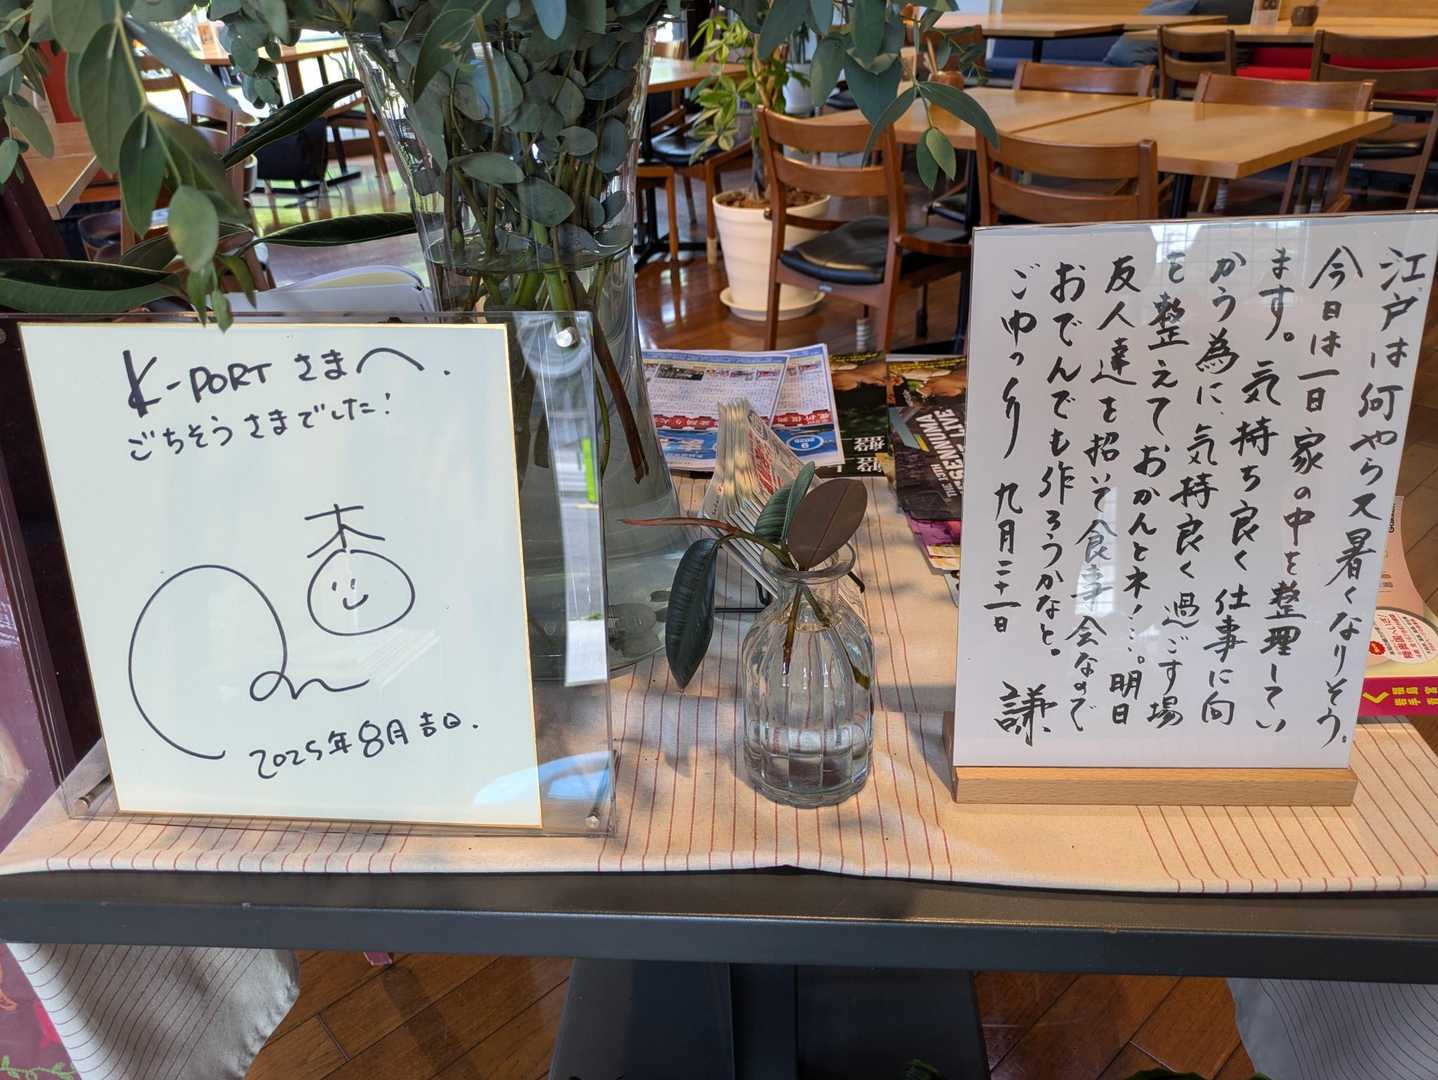 K-PORT さまへ.
ごちそうさまでした!
杏
2025年8月吉日.
江戸は何やら又暑くなりそう。
今日は一日家の中を整理してい
ます。気持ち良く仕事に向
かう為に、気持良く過ごす場
を整えておかんとネ!…。明日
友人達を招いて食事会なので
おでんでも作ろうかなと。
ごゆっくり 九月二十一日
謙